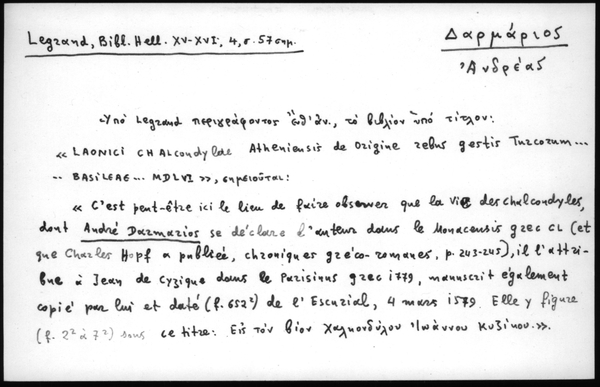 Legrand, Bibl. Hell. XV-XVI, 4, σ. 57 σημ.
Δαρμάριος
Ἀνδρέας
Ὑπό Legrand περιγράφοντος ἔνθ' ἀν., τό βιβλίον ὑπό τίτλον:
« LAONICI CHALCONDYLAE Atheniensis de Origine rebus gestis Turcorum ...
.. BASILEAE ... MDLVI », σημειοῦται:
« C'est peut-être ici le lieu de faire observer que la Vie des chalcondyles,
dont André Darmarios se déclare l'auteur dans le Monacensis grec CL (et
que Charles Hopf a publiée, chroniques gréco-romanes, p. 243-245), il l'attri-
bue à Jean de Cyzique dans le Parisinus grec 1779, manuscrit également
copié par lui et daté (f. 652²) de l'Escurial, 4 mars 1579. Elle y figure
(f. 2² à 7²) sous ce titre: Εἰς τόν βίον Χαλκονδύλου Ἰωάννου Κυζίκου.».